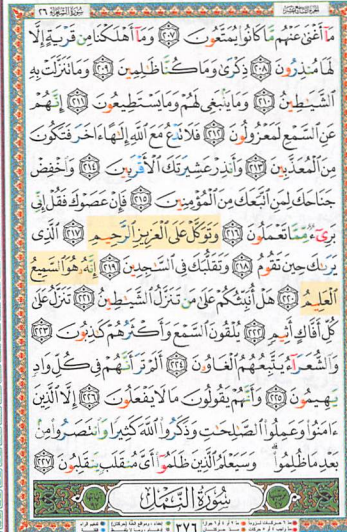 مَآ أَغْنَىٰ عَنْهُم مَّا كَانُوا۟ يُمَتَّعُونَ ٢٠٧ وَمَآ أَهْلَكْنَا مِن قَرْيَةٍ إِلَّا
لَهَا مُنذِرُونَ ٢٠٨ ذِكْرَىٰ وَمَا كُنَّا ظَـٰلِمِينَ ٢٠٩ وَمَا تَنَزَّلَتْ بِهِ
ٱلشَّيَـٰطِينُ ٢١٠ وَمَا يَنۢبَغِى لَهُمْ وَمَا يَسْتَطِيعُونَ ٢١١ إِنَّهُمْ
عَنِ ٱلسَّمْعِ لَمَعْزُولُونَ ٢١٢ فَلَا تَدْعُ مَعَ ٱللَّهِ إِلَـٰهًا ءَاخَرَ فَتَكُونَ
مِنَ ٱلْمُعَذَّبِينَ ٢١٣ وَأَنذِرْ عَشِيرَتَكَ ٱلْأَقْرَبِينَ ٢١٤ وَٱخْفِضْ
جَنَاحَكَ لِمَنِ ٱتَّبَعَكَ مِنَ ٱلْمُؤْمِنِينَ ٢١٥ فَإِنْ عَصَوْكَ فَقُلْ إِنِّى
بَرِىٓءٌ مِّمَّا تَعْمَلُونَ ٢١٦ وَتَوَكَّلْ عَلَى ٱلْعَزِيزِ ٱلرَّحِيمِ ٢١٧ ٱلَّذِى
يَرَىٰكَ حِينَ تَقُومُ ٢١٨ وَتَقَلُّبَكَ فِى ٱلسَّـٰجِدِينَ ٢١٩ إِنَّهُۥ هُوَ ٱلسَّمِيعُ
ٱلْعَلِيمُ ٢٢٠ هَلْ أُنَبِّئُكُمْ عَلَىٰ مَن تَنَزَّلُ ٱلشَّيَـٰطِينُ ٢٢١ تَنَزَّلُ عَلَىٰ
كُلِّ أَفَّاكٍ أَثِيمٍ ٢٢٢ يُلْقُونَ ٱلسَّمْعَ وَأَكْثَرُهُمْ كَـٰذِبُونَ ٢٢٣
وَٱلشُّعَرَآءُ يَتَّبِعُهُمُ ٱلْغَاوُۥنَ ٢٢٤ أَلَمْ تَرَ أَنَّهُمْ فِى كُلِّ وَادٍ
يَهِيمُونَ ٢٢٥ وَأَنَّهُمْ يَقُولُونَ مَا لَا يَفْعَلُونَ ٢٢٦ إِلَّا ٱلَّذِينَ
ءَامَنُوا۟ وَعَمِلُوا۟ ٱلصَّـٰلِحَـٰتِ وَذَكَرُوا۟ ٱللَّهَ كَثِيرًا وَٱنتَصَرُوا۟ مِنۢ
بَعْدِ مَا ظُلِمُوا۟ وَسَيَعْلَمُ ٱلَّذِينَ ظَلَمُوٓا۟ أَىَّ مُنقَلَبٍ يَنقَلِبُونَ ٢٢٧
سُورَةُ ٱلنَّمْلِ
٣٧٦